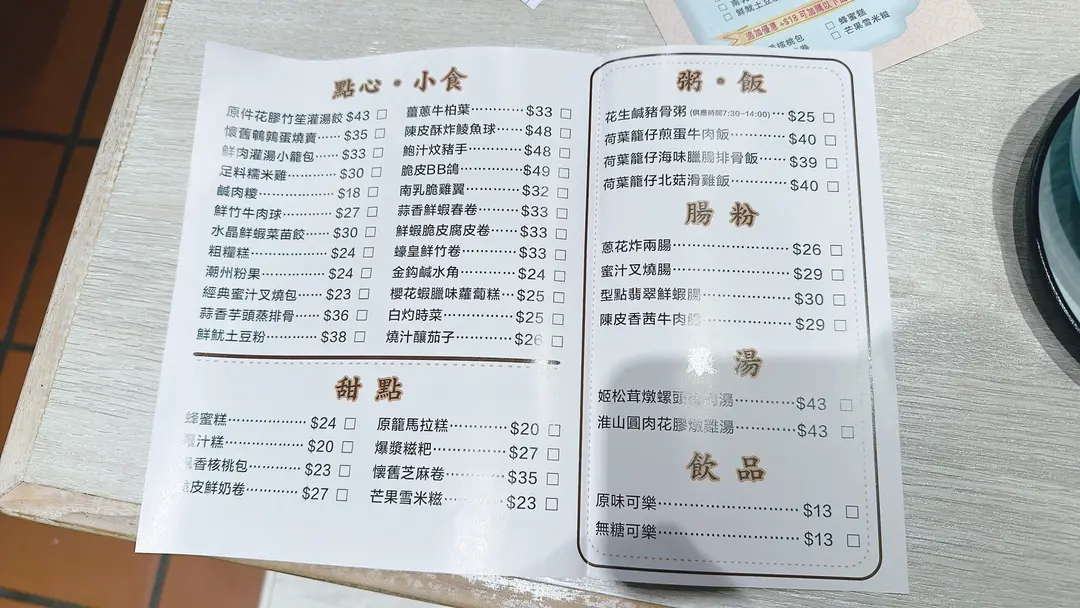 點心・小食
原件花膠竹笙灌湯餃 $43 □
懷舊鵪鶉蛋燒賣 $35 □
鮮肉灌湯小籠包 $33 □
足料糯米雞 $30 □
鹹肉糭 $18 □
鮮竹牛肉球 $27 □
水晶鮮蝦菜苗餃 $30 □
粗糧糕 $24 □
潮州粉果 $24 □
經典蜜汁叉燒包 $23 □
蒜香芋頭蒸排骨 $36 □
鮮魷土豆粉 $38 □
薑蔥牛柏葉 $33 □
陳皮酥炸鯪魚球 $48 □
鮑汁炆豬手 $48 □
脆皮BB鴿 $49 □
南乳脆雞翼 $32 □
蒜香鮮蝦春卷 $33 □
鮮蝦脆皮腐皮卷 $33 □
蠔皇鮮竹卷 $33 □
金鈎鹹水角 $24 □
櫻花蝦臘味蘿蔔糕 $25 □
白灼時菜 $25 □
燒汁釀茄子 $26 □
甜點
蜂蜜糕 $24 □
汁糕 $20 □
香核桃包 $23 □
皮鮮奶卷 $27 □
原籠馬拉糕 $20 □
爆漿糍粑 $27 □
懷舊芝麻卷 $35 □
芒果雪米糍 $23 □
粥・飯
花生鹹豬骨粥 (供應時間7:30-14:00) $25 □
荷葉籠仔煎蛋牛肉飯 $40 □
荷葉籠仔海味臘腸排骨飯 $39 □
荷葉籠仔北菇滑雞飯 $40 □
腸粉
蔥花炸兩腸 $26 □
蜜汁叉燒腸 $29 □
型點翡翠鮮蝦腸 $30 □
陳皮香茜牛肉腸 $29 □
湯
姬松茸燉螺頭湯 $43 □
淮山圓肉花膠燉雞湯 $43 □
飲品
原味可樂 $13 □
無糖可樂 $13 □
鮮魷土豆
追加優惠 +$18 可加購以下
核桃包
□ 蜂蜜糕
□ 芒果雪米糍